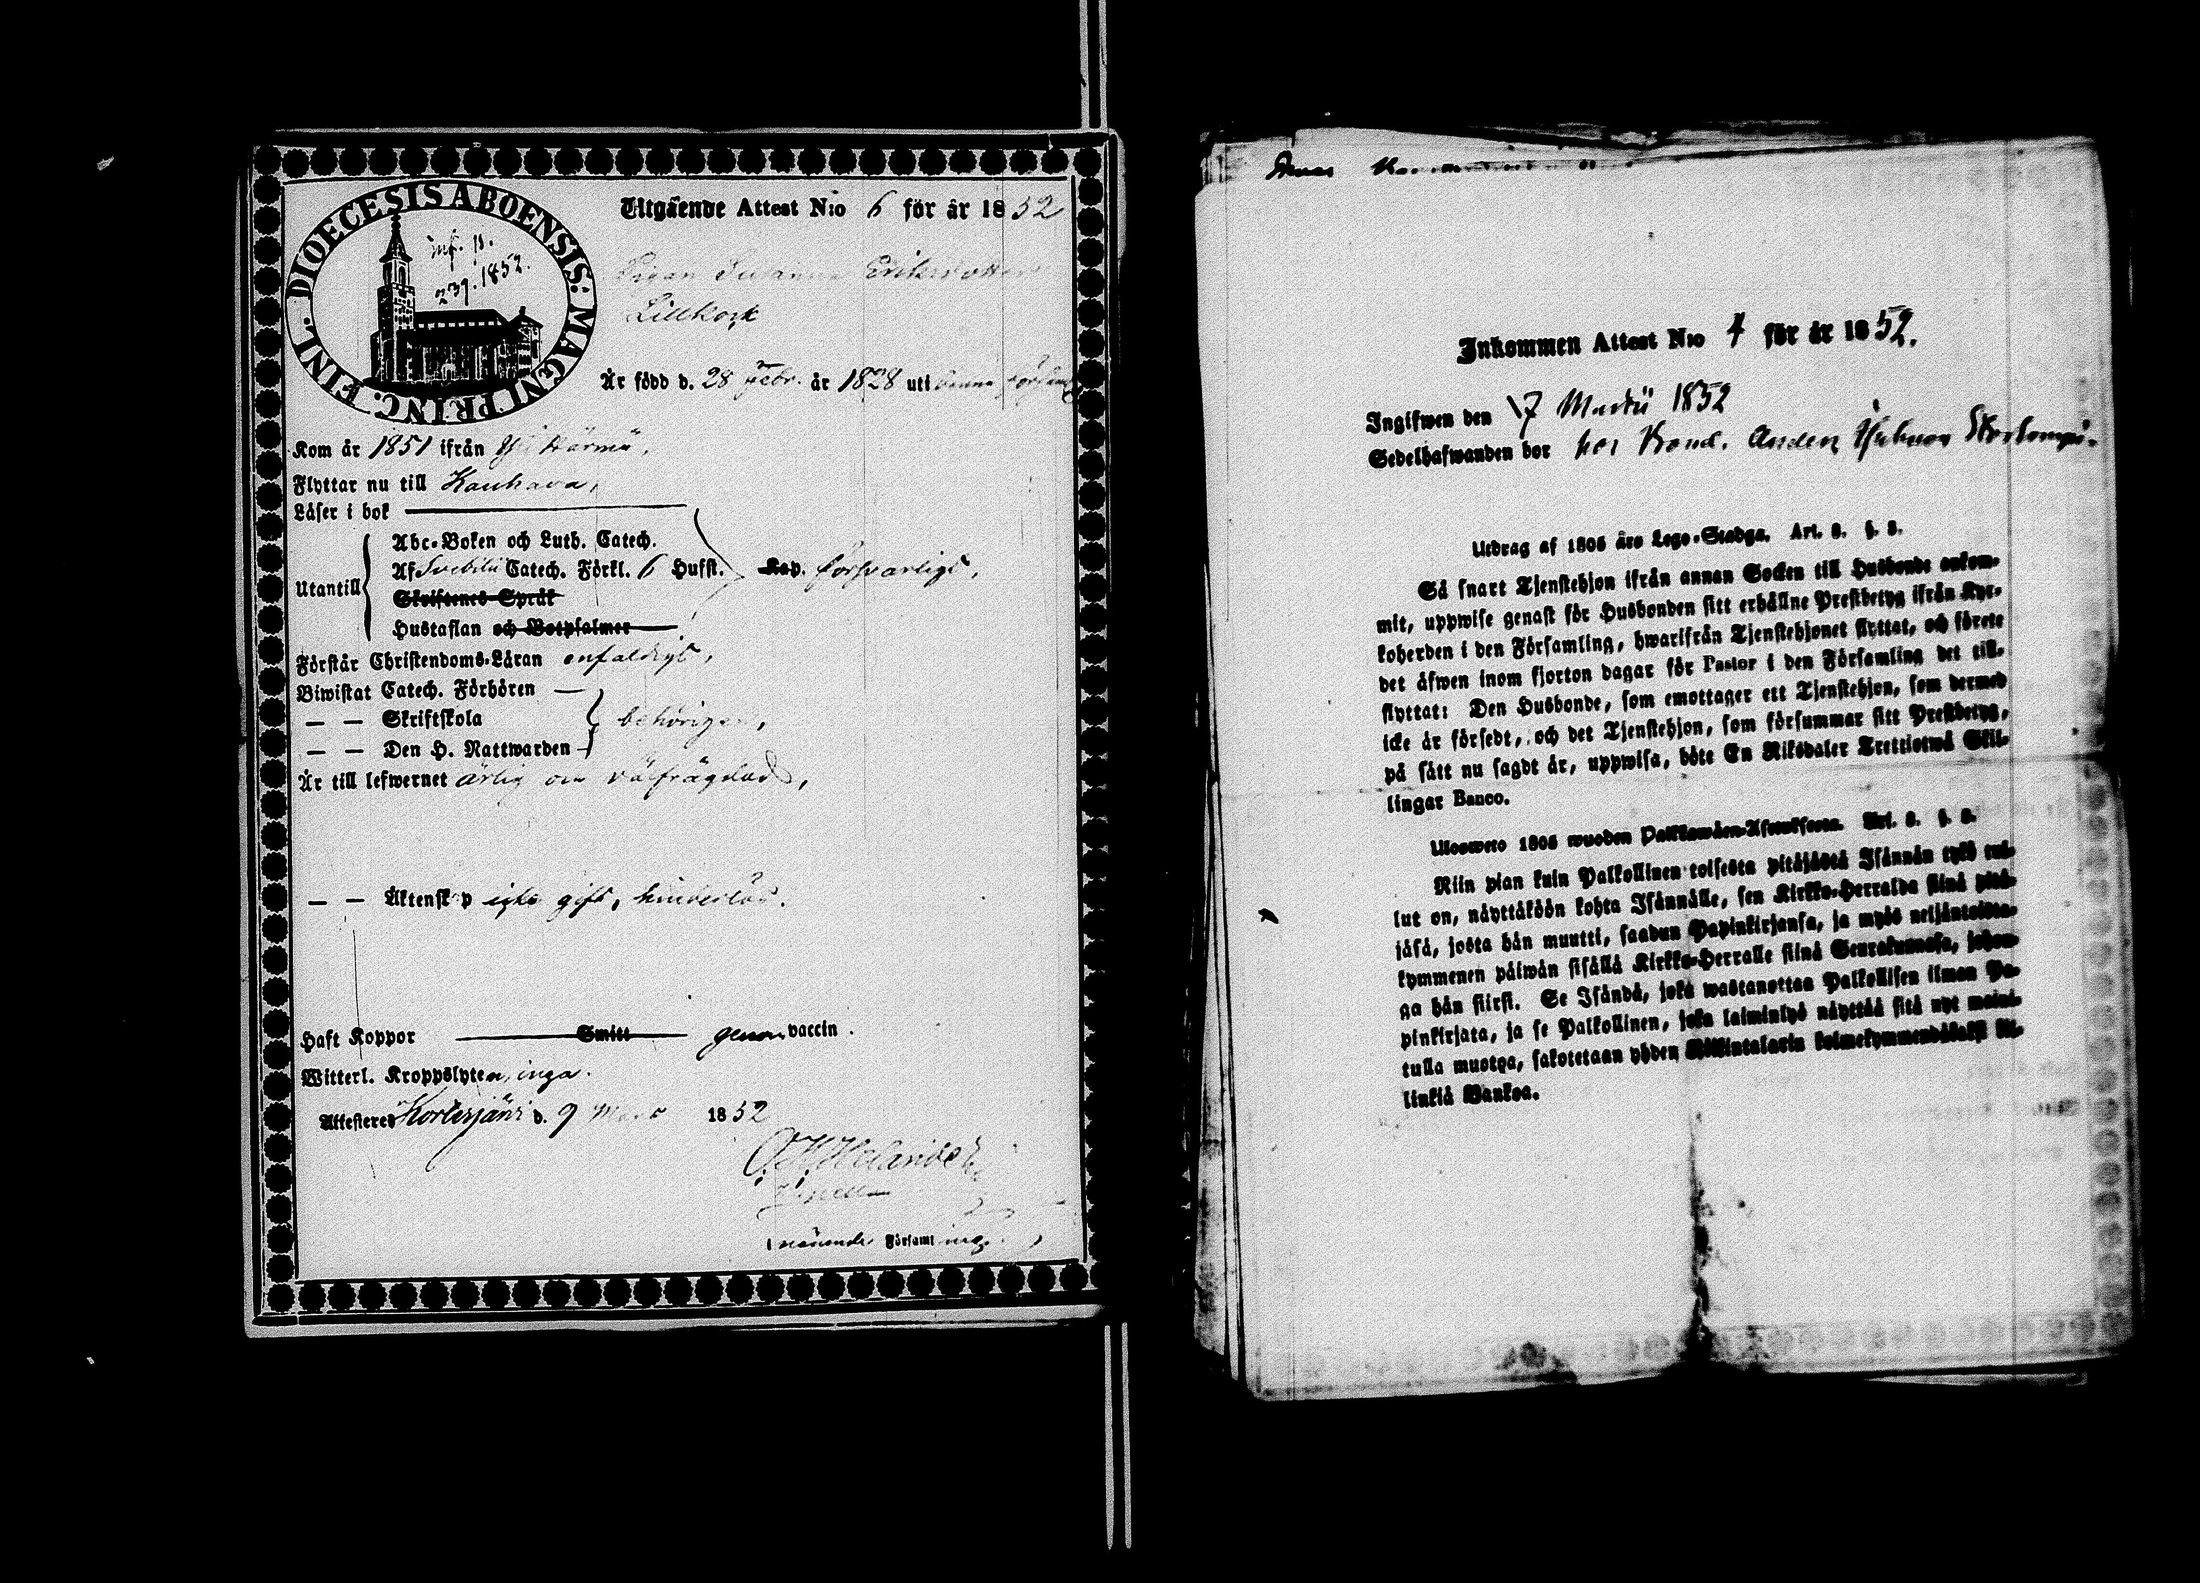 DIOECESIS ABOENSIS: MAGNI PRINC. FINL.
inf. p.
239. 1852.
Utgående Attest N:o 6 för år 1852
Pigan Susanna Eriksdotter
Lillkork
Är född d. 28 Febr. år 1828 uti denna församl
Kom år 1851 ifrån Yli Härmä,
Flyttar nu till Kauhava,
Läser i bok
Utantill
Abc-Boken och Luth. Catech.
Af Svebilii Catech. Förkl. 6 Hufst. Kap. försvarligt,
Skriftenes Språk
Hustaflan och Botpsalmer
Förstår Christendoms-Läran enfaldigt,
Biwistat Catech. Förhören —
— — Skriftskola behörigen,
— — Den H. Nattwarden —
Är till lefwernet ärlig och välfrägdad,
— — Äktenskap icke gift, hinderlös.
Haft Koppor Smitt genom vaccin.
Witterl. Kroppslyten, inga.
Attesteras Kortesjärvi d. 9 Mars 1852
Församling
Inkommen Attest N:o 4 för år 1852.
Ingifwen den 17 Martii 1852
Sedelhafwanden bor hos Bond. Anders
Utdrag af 1805 års Lego-Stadga. Art. 8. §. 8.
Så snart Tjenstehjon ifrån annan Socken till Husbonde ankom-
mit, uppwise genast för Husbonden sitt erhållne Prestbetyg ifrån Kyr-
koherden i den Församling, hwarifrån Tjenstehjonet flyttat, och förete
det äfwen inom fjorton dagar för Pastor i den Församling det till-
flyttat: Den Husbonde, som emottager ett Tjenstehjon, som dermed
icke är försedt, och det Tjenstehjon, som försummar sitt Prestbetyg,
på sätt nu sagdt är, uppwisa, böte En Riksdaler Trettiotwå Skil-
lingar Banco.
Ulosweto 1805 wuoden Palkkawäen-Asetuksesta. Art. 8. §. 8.
Niin pian kuin Palkollinen toisesta pitäjästä Isännän tykö tul-
lut on, näyttäköön kohta Isännälle, sen Kirkko-Herralda siinä pitä-
jäsä, josta hän muutti, saadun Papinkirjansa, ja myös neljäntoista-
kymmenen päiwän sisällä Kirkko-Herralle siinä Seurakunnasa, johon-
ga hän siirsi. Se Isändä, joka wastanottaa Palkollisen ilman Pa-
pinkirjata, ja se Palkollinen, joka laiminlyö näyttää sitä nyt maini-
tulla muotoa, sakotetaan yhden Riikintalarin kolmekymmendäkaksi kil-
linkiä Bankoa.